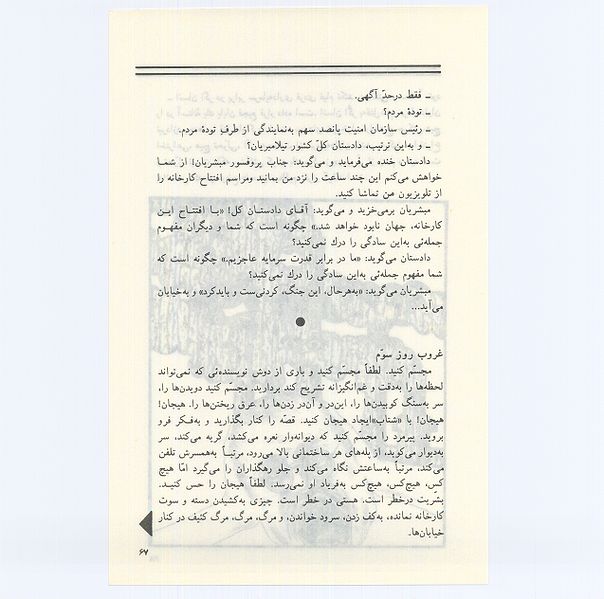 ـ فقط درحدّ آگهی.
ـ تودهٔ مردم؟
ـ رئیس سازمان امنیت پانصد سهم به‌نمایندگی از طرفِ تودهٔ مردم.
ـ و به‌این ترتیب، دادستان کلّ کشور تیلامبریان؟
دادستان خنده می‌فرماید و می‌گوید: جناب پروفسور مبشریان! از شما
خواهش می‌کنم این چند ساعت را نزد من بمانید ومراسم افتتاح کارخانه را
از تلویزیون من تماشا کنید.
مبشریان برمی‌خزید و می‌گوید: آقای دادستان کل! «بـا افتتاح ایـن
کارخانه، جهان نابود خواهد شد.» چگونه است که شما و دیگران مفهوم
جمله‌ئی به‌این سادگی را درك نمی‌کنید؟
دادستان می‌گوید: «ما در برابر قدرت سرمایه عاجزیم.» چگونه است که
شما مفهوم جمله‌ئی به‌این سادگی را درك نمی‌کنید؟
مبشریان می‌گوید: «به‌هرحال، این جنگ، کردنی‌ست و بایدکرد» و به‌خیابان
می‌آید...
غروب روز سوّم
مجسّم کنید. لطفاً مجسّم کنید و باری از دوش نویسنده‌ئی که نمی‌تواند
لحظه‌ها را به‌دقت و غم‌انگیزانه تشریح کند بردارید. مجسّم کنید دویدن‌ها را،
سر به‌سنگ کوبیدن‌ها را، این‌در و آن‌در زدن‌ها را، عرق ریختن‌ها را. هیجان!
هیجان! با «شتاب»ایجاد هیجان کنید. قصّه را کنار بگذارید و به‌فکر فرو
بروید. پیرمرد را مجسّم کنید که دیوانه‌وار نعره می‌کشد، گریه می‌کند، سر
به‌دیوار می‌کوبد، از پله‌های هر ساختمانی بالا می‌رود، مرتبـاً به‌همسرش تلفن
می‌کند، مرتباً به‌ساعتش نگاه می‌کند و جلو رهگذاران را می‌گیرد امّا هیچ
کس، هیچ‌کس، هیچ‌کس به‌فریاد او نمی‌رسد. لطفاً هیجان را حس کنیـد.
بشریت درخطر است. هستی در خطر است. چیزی به‌کشیدن دسته و سوت
کارخانه نمانده، به‌کف زدن، سرود خواندن، و مرگ، مرگ، مرگ کثیف در کنار
خیابان‌ها.
۶۷